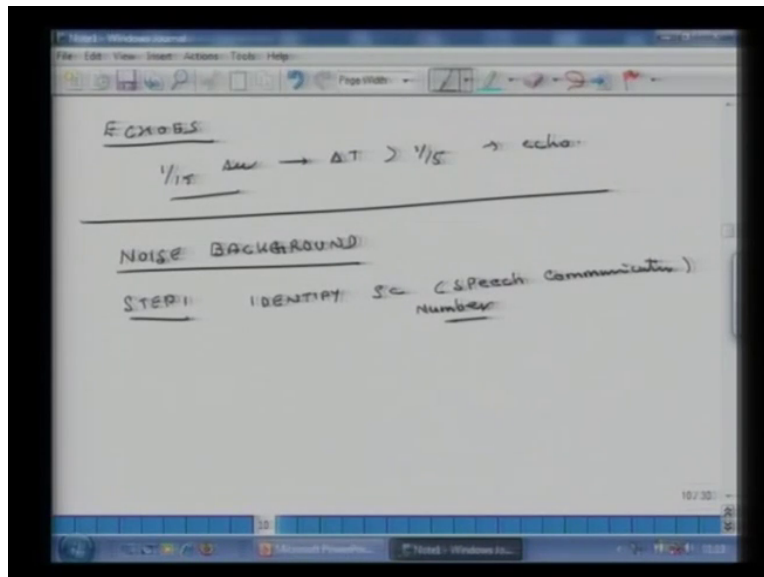 Note1 - Windows Journal
File Edit View Insert Actions Tools Help
Page Width
ECHOES
1/15 → ΔT > 1/15 → echo.
NOISE BACKGROUND
STEP1 IDENTIFY SC (Speech Communication)
Number
10 / 30
10
Microsoft PowerPoin... Note1 - Windows Jo...